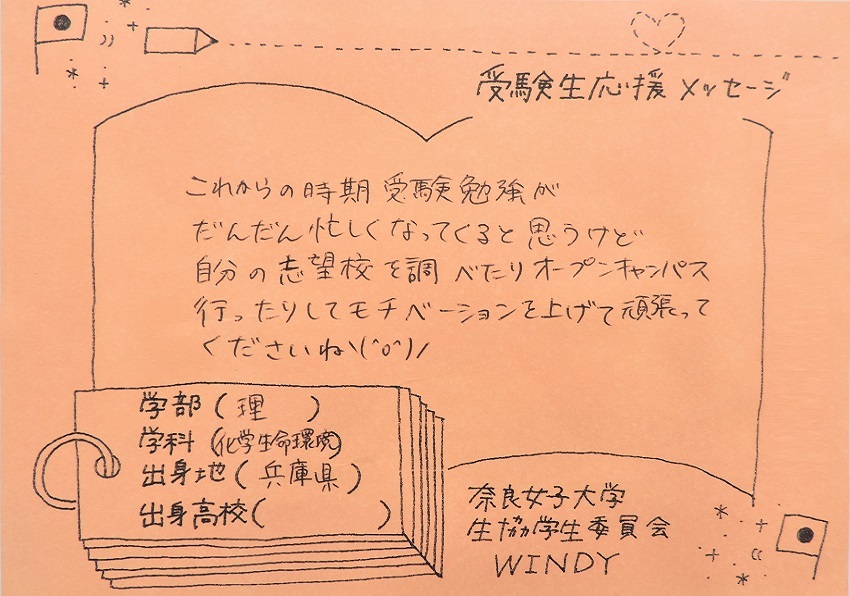 受験生応援メッセージ
これからの時期受験勉強が
だんだん忙しくなってくると思うけど
自分の志望校を調べたりオープンキャンパス
行ったりしてモチベーションを上げて頑張って
くださいね\(^o^)/
学部(理)
学科(化学生命環境)
出身地(兵庫県)
出身高校( )
奈良女子大学
生協学生委員会
WINDY